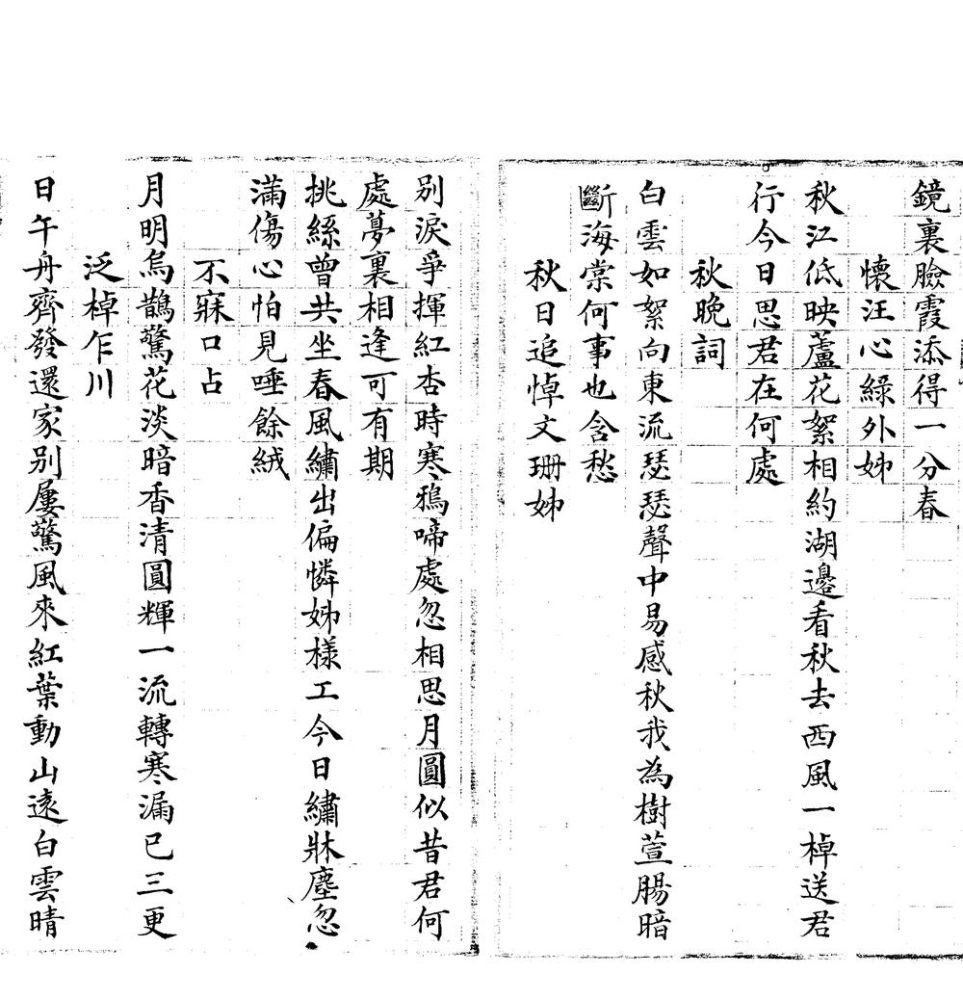 鏡裏臉霞添得一分春
懷汪心綠外姊
秋江低映蘆花絮相約湖邊看秋去西風一棹送君
行今日思君在何處
秋晚詞
白雲如絮向東流瑟瑟聲中易感秋我為樹萱腸暗
斷海棠何事也含愁
秋日追悼文珊姊
別淚爭揮紅杏時寒鴉啼處忽相思月圓似昔君何
處夢裏相逢可有期
挑絲曾共坐春風繡出偏憐姊樣工今日繡牀塵忽
滿傷心怕見唾餘絨
不寐口占
月明烏鵲驚花淡暗香清圓輝一流轉寒漏已三更
泛棹乍川
日午舟齊發還家別屢驚風來紅葉動山遠白雲晴